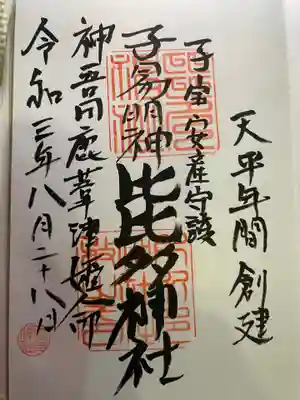 天平年間創建
子宝安産守護
子易明神比比多神社
神吾田鹿葦津姫命
令和三年八月二十八日